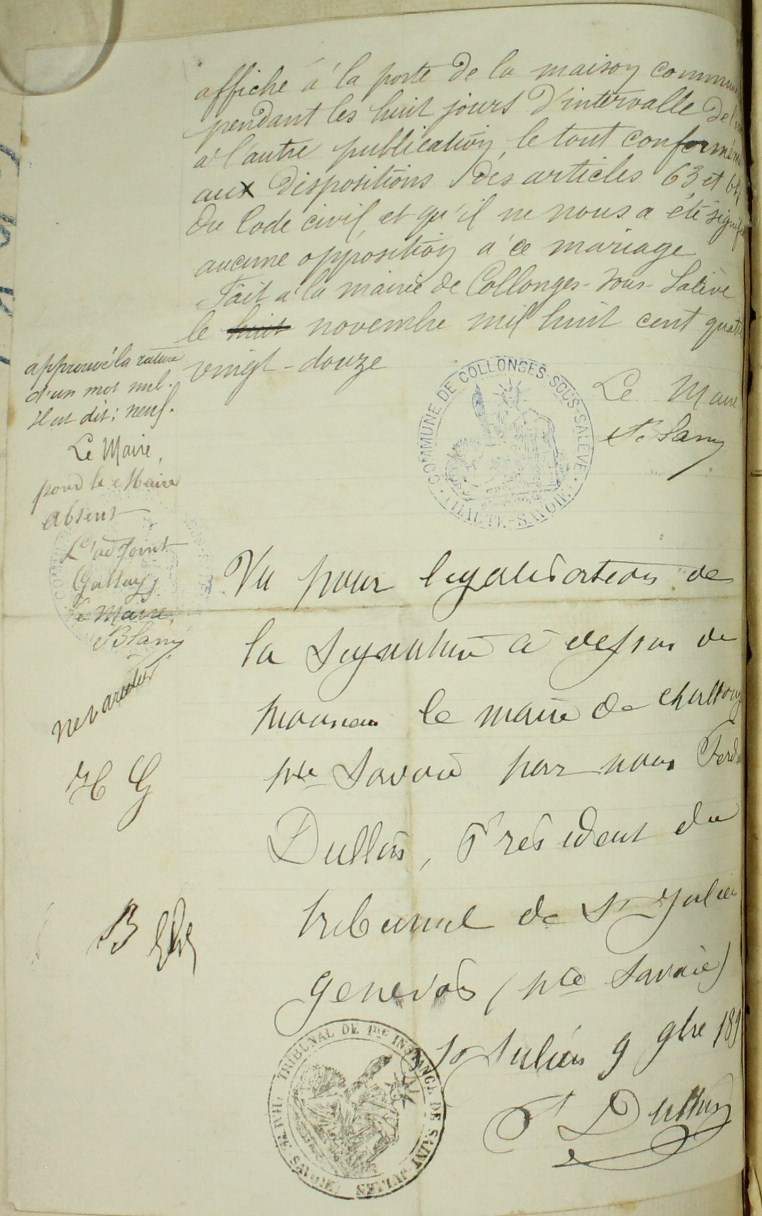 affiché à la porte de la maison commun
pendant les huit jours d'intervalle de l'
à l'autre publication, le tout conformém
aux dispositions des articles 63 et 64
du Code civil, et qu'il ne nous a été signif
aucune opposition à ce mariage
Fait à la mairie de Collonges-sous-Salève
le huit novembre mil huit cent quat
vingt-douze
Le Maire
approuvé la rature
d'un mot nul.
Il est dit: neuf.
Le Maire,
pour le Maire
Absent
L'adjoint
Le Maire,
COMMUNE DE COLLONGES-SOUS-SALÈVE
HAUTE-SAVOIE
ne varietur
H G
B
Vu pour légalisation de
la signature ci dessus de
Monsieur le maire de
hte Savoie par nous Ferd
Dullin, Président du
tribunal de St Julien
Genevois (hte Savoie)
St Julien 9 9bre 189
F Dullin
TRIBUNAL DE 1re INSTANCE DE SAINT JULIEN